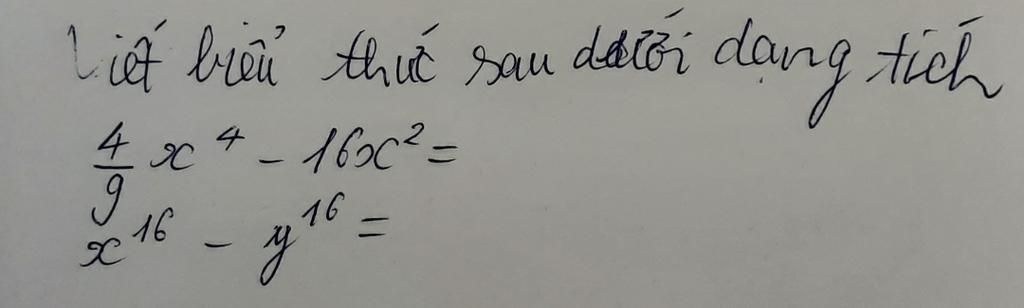 Viết biểu thức sau dưới dạng tích
4/9 x⁴ - 16x² =
x¹⁶ - y¹⁶ =